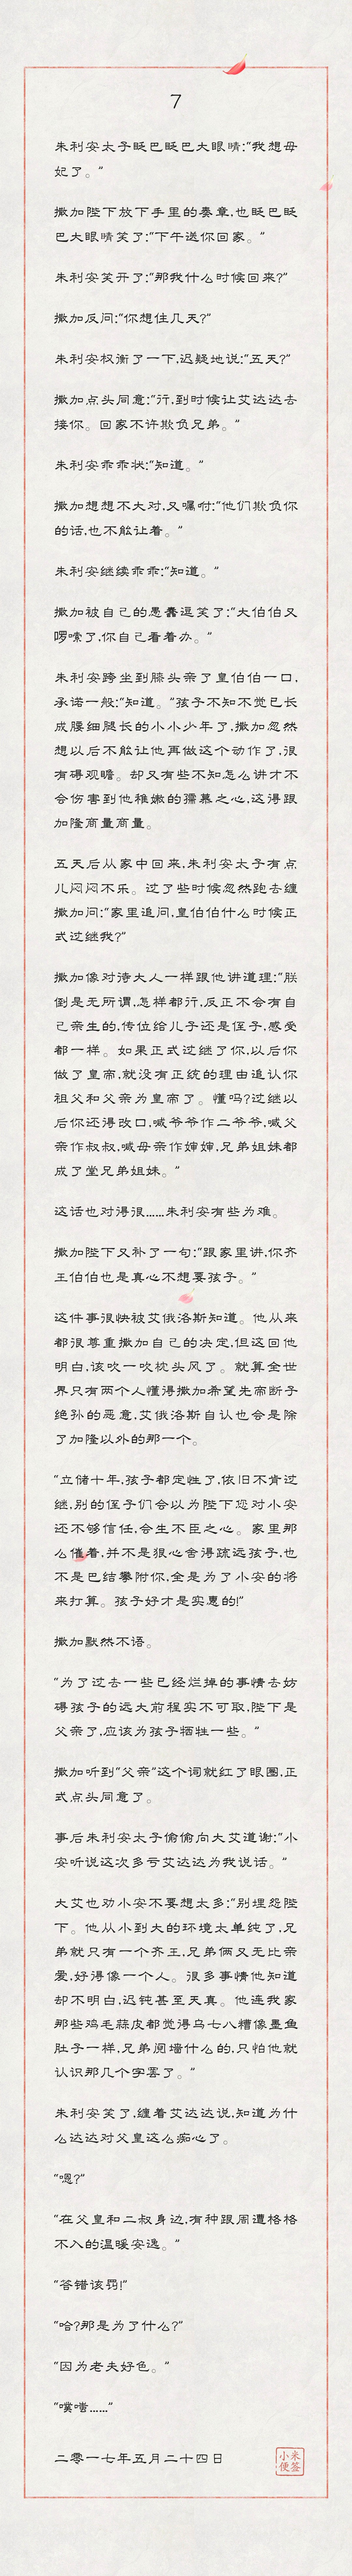 7
朱利安太子眨巴眨巴大眼睛:“我想母
妃了。”
撒加陛下放下手里的奏章,也眨巴眨
巴大眼睛笑了:“下午送你回家。”
朱利安笑开了:“那我什么时候回来?”
撒加反问:“你想住几天?”
朱利安权衡了一下,迟疑地说:“五天?”
撒加点头同意:“行,到时候让艾达达去
接你。回家不许欺负兄弟。”
朱利安乖乖状:“知道。”
撒加想想不大对,又嘱咐:“他们欺负你
的话,也不能让着。”
朱利安继续乖乖:“知道。”
撒加被自己的愚蠢逗笑了:“大伯伯又
啰嗦了,你自己看着办。”
朱利安跨坐到膝头亲了皇伯伯一口,
承诺一般:“知道。”孩子不知不觉已长
成腰细腿长的小小少年了,撒加忽然
想以后不能让他再做这个动作了,很
有碍观瞻。却又有些不知怎么讲才不
会伤害到他稚嫩的孺慕之心,这得跟
加隆商量商量。
五天后从家中回来,朱利安太子有点
儿闷闷不乐。过了些时候忽然跑去缠
撒加问:“家里追问,皇伯伯什么时候正
式过继我?”
撒加像对待大人一样跟他讲道理:“朕
倒是无所谓,怎样都行,反正不会有自
己亲生的,传位给儿子还是侄子,感受
都一样。如果正式过继了你,以后你
做了皇帝,就没有正统的理由追认你
祖父和父亲为皇帝了。懂吗?过继以
后你还得改口,喊爷爷作二爷爷,喊父
亲作叔叔,喊母亲作婶婶,兄弟姐妹都
成了堂兄弟姐妹。”
这话也对得很……朱利安有些为难。
撒加陛下又补了一句:“跟家里讲,你齐
王伯伯也是真心不想要孩子。”
这件事很快被艾俄洛斯知道。他从来
都很尊重撒加自己的决定,但这回他
明白,该吹一吹枕头风了。就算全世
界只有两个人懂得撒加希望先帝断子
绝孙的恶意,艾俄洛斯自认也会是除
了加隆以外的那一个。
“立储十年,孩子都定性了,依旧不肯过
继,别的侄子们会以为陛下您对小安
还不够信任,会生不臣之心。家里那
么催着,并不是狠心舍得疏远孩子,也
不是巴结攀附你,全是为了小安的将
来打算。孩子好才是实惠的!”
撒加默然不语。
“为了过去一些已经烂掉的事情去妨
碍孩子的远大前程实不可取,陛下是
父亲了,应该为孩子牺牲一些。”
撒加听到“父亲”这个词就红了眼圈,正
式点头同意了。
事后朱利安太子偷偷向大艾道谢:“小
安听说这次多亏艾达达为我说话。”
大艾也劝小安不要想太多:“别埋怨陛
下。他从小到大的环境太单纯了,兄
弟就只有一个齐王,兄弟俩又无比亲
爱,好得像一个人。很多事情他知道
却不明白,迟钝甚至天真。他连我家
那些鸡毛蒜皮都觉得乌七八糟像墨鱼
肚子一样,兄弟阋墙什么的,只怕他就
认识那几个字罢了。”
朱利安笑了,缠着艾达达说,知道为什
么达达对父皇这么痴心了。
“嗯?”
“在父皇和二叔身边,有种跟周遭格格
不入的温暖安逸。”
“答错该罚!”
“哈?那是为了什么?”
“因为老夫好色。”
“噗嗤……”
二零一七年五月二十四日
小米
便签